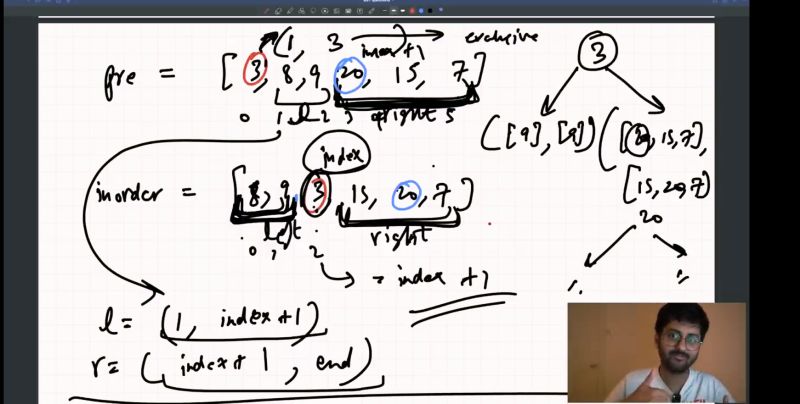 (1, 3) → exclusive
index+1
pre = [3, 8, 9, 20, 15, 7]
0 1 l 2 3 right 5
index
inorder = [8, 9, 3, 15, 20, 7]
left right
0 1 2
→ = index +1
l = (1, index+1)
r = (index+1, end)
3
([9], [9]) ([20, 15, 7],
[15, 20, 7])
20